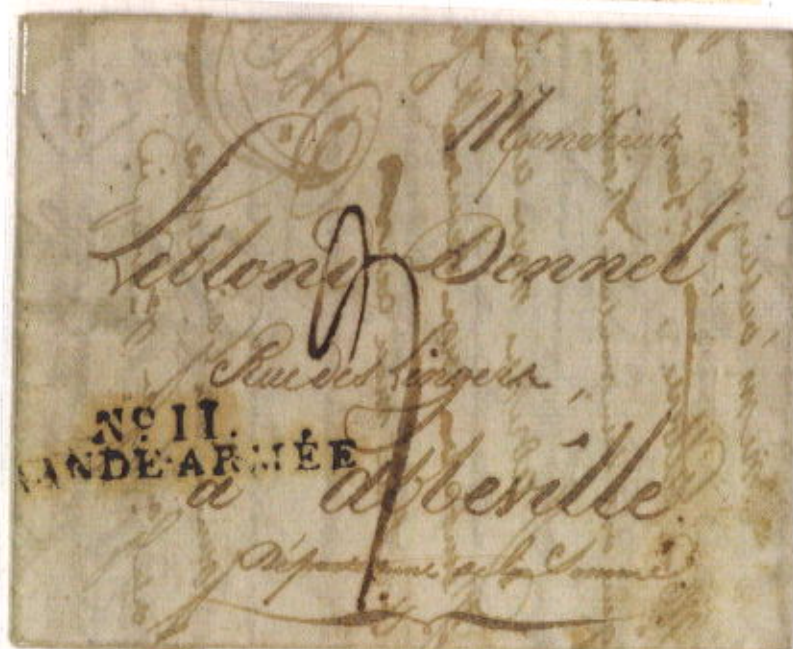 Monsieur
Leblond Dennel,
Rue des Lingers,
Nº 11.
ANDE-ARMÉE
à Abbeville
Département de la Somme